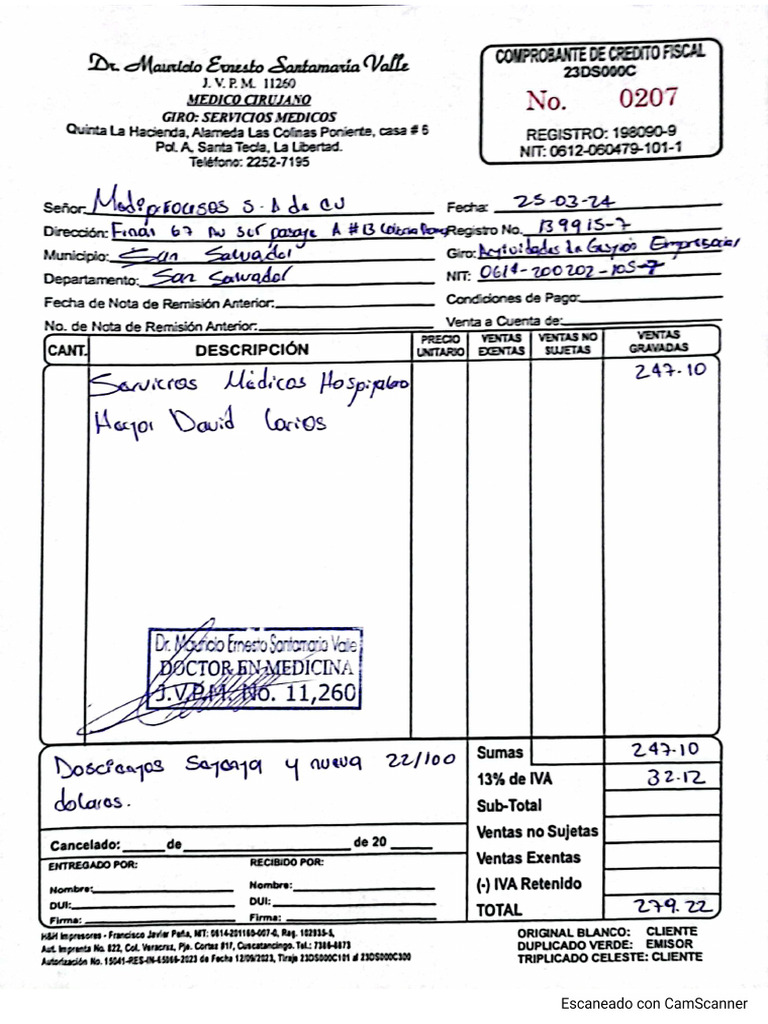 Dr. Mauricio Ernesto Santamaría Valle
J. V. P. M. 11260
MEDICO CIRUJANO
GIRO: SERVICIOS MEDICOS
Quinta La Hacienda, Alameda Las Colinas Poniente, casa # 6
Pol. A, Santa Tecla, La Libertad.
Teléfono: 2252-7195
COMPROBANTE DE CREDITO FISCAL
23DS000C
No. 0207
REGISTRO: 198090-9
NIT: 0612-060479-101-1
Señor: Mediprocesos S.A de CV
Fecha: 25-03-24
Dirección: Final 67 Av Sur pasaje A #13
Registro No. 139915-7
Municipio: San Salvador
Giro: Actividades de Gestión Empresarial
Departamento: San Salvador
NIT: 0614-200202-105-7
Fecha de Nota de Remisión Anterior:
Condiciones de Pago:
No. de Nota de Remisión Anterior:
Venta a Cuenta de:
CANT. DESCRIPCIÓN PRECIO UNITARIO VENTAS EXENTAS VENTAS NO SUJETAS VENTAS GRAVADAS
Servicios Médicos Hospitalario 247.10
David Larios
Dr. Mauricio Ernesto Santamaria Valle
DOCTOR EN MEDICINA
J.V.P.M. No. 11,260
Doscientos Setenta y nueve 22/100
dolares.
Sumas 247.10
13% de IVA 32.12
Sub-Total
Ventas no Sujetas
Ventas Exentas
(-) IVA Retenido
TOTAL 279.22
Cancelado: de de 20
ENTREGADO POR: RECIBIDO POR:
Nombre: Nombre:
DUI: DUI:
Firma: Firma:
H&H Impresores - Francisco Javier Peña, NIT: 0614-201165-007-0, Reg. 102935-8,
Aut. Imprenta No. 822, Col. Veracruz, Pje. Cortez #17, Cuscatancingo. Tel.: 7386-8873
Autorización No. 15041-RES-IN-65066-2023 de Fecha 12/09/2023, Tiraje 23DS000C101 al 23DS000C300
ORIGINAL BLANCO: CLIENTE
DUPLICADO VERDE: EMISOR
TRIPLICADO CELESTE: CLIENTE
Escaneado con CamScanner